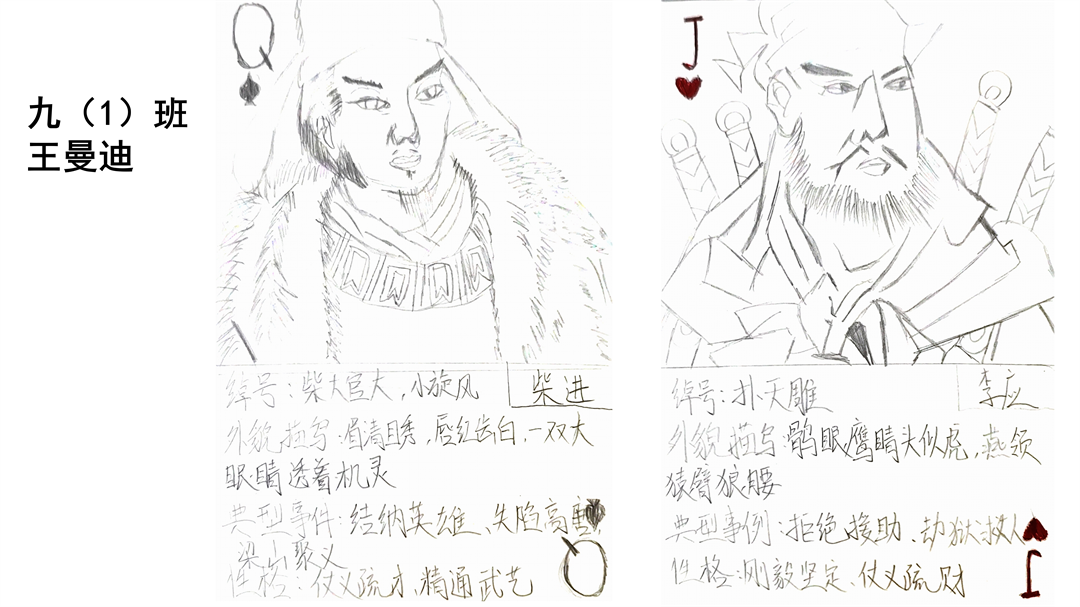 九（1）班
王曼迪
Q
绰号：柴大官人，小旋风
柴进
外貌描写：眉清目秀，唇红齿白，一双大
眼睛透着机灵
典型事件：结纳英雄、失陷高唐
梁山聚义
性格：仗义疏财，精通武艺
Q
J
绰号：扑天雕
李应
外貌描写：鹘眼鹰睛头似虎，燕颔
猿臂狼腰
典型事例：拒绝援助、劫狱救人
性格：刚毅坚定、仗义疏财
J